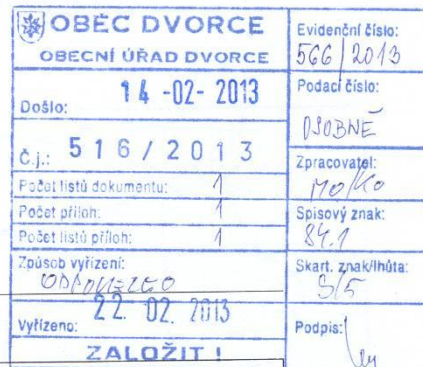 OBEC DVORCE
OBECNÍ ÚŘAD DVORCE
Došlo: 14 -02- 2013
Č.j.: 516/2013
Počet listů dokumentu: 1
Počet příloh: 1
Počet listů příloh: 1
Způsob vyřízení:
Vyřízeno: 22. 02. 2013
ZALOŽIT !
Evidenční číslo:
566/2013
Podací číslo:
OSOBNĚ
Zpracovatel:
Mo/Ko
Spisový znak:
84.1
Skart. znak/lhůta:
S/5
Podpis: